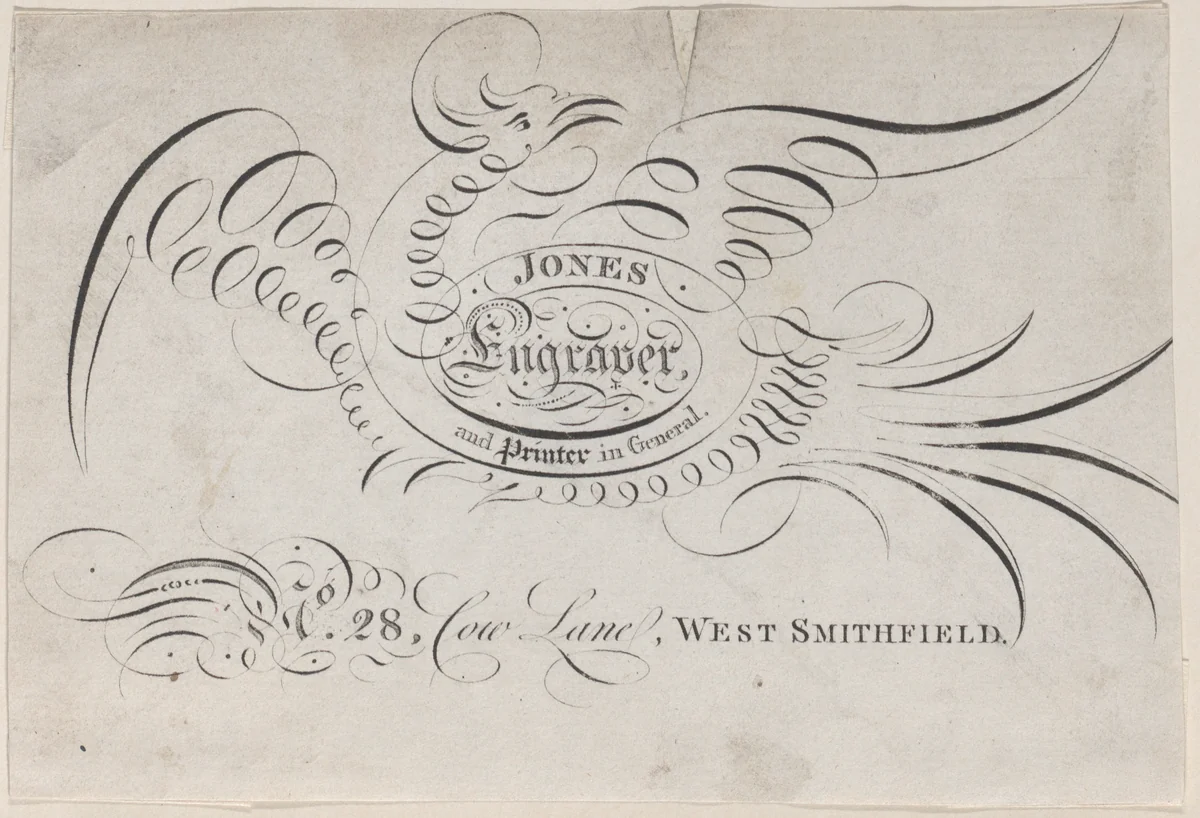 JONES
Engraver,
and Printer in General.
No. 28, Cow Lane, WEST SMITHFIELD.